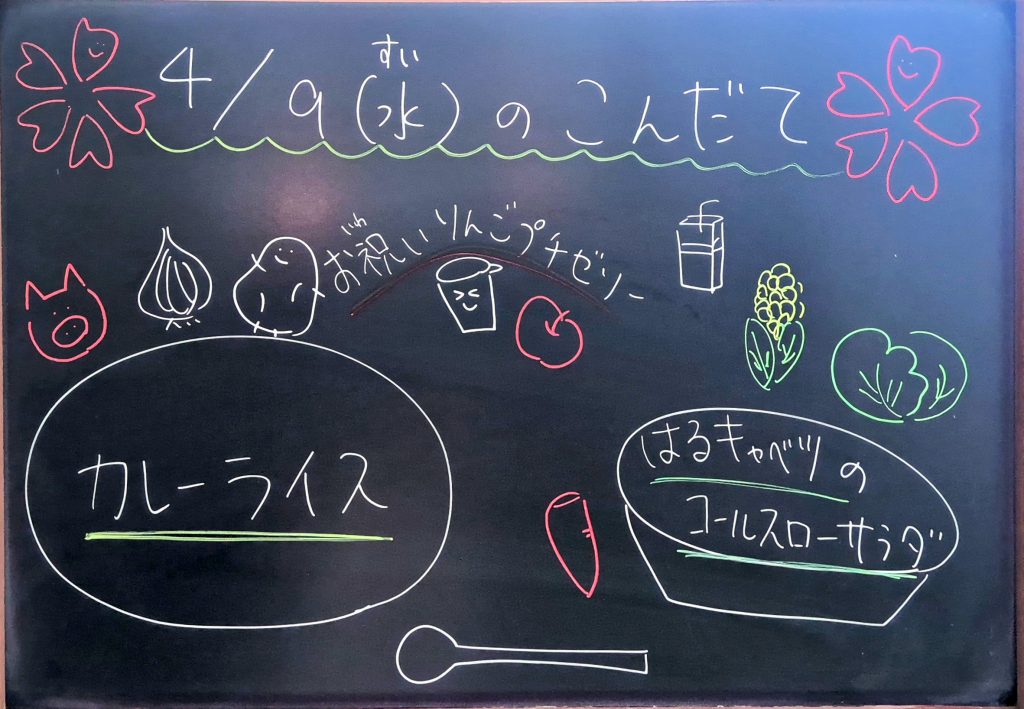 4/9(水)のこんだて
すい
お祝いりんごプチゼリー
いわ
カレーライス
はるキャベツの
コールスローサラダ